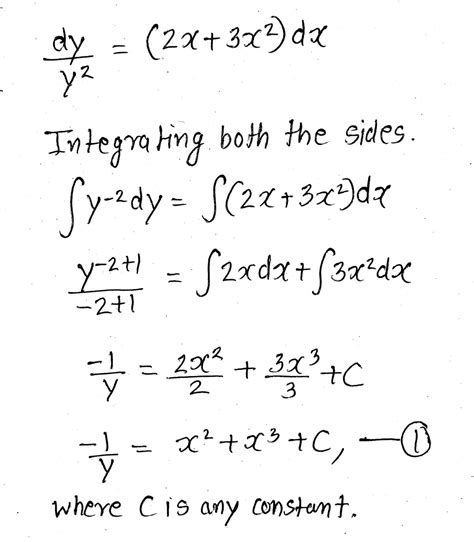 dy/y² = (2x+3x²)dx
Integrating both the sides.
∫y⁻²dy = ∫(2x+3x²)dx
y⁻²⁺¹/-2+1 = ∫2xdx+∫3x²dx
-1/y = 2x²/2 + 3x³/3 +C
-1/y = x²+x³+C, —①
where C is any constant.